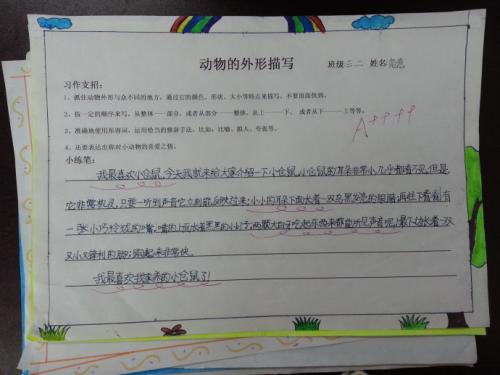 动物的外形描写 班级 三、二 姓名
习作支招:
1、抓住动物外形与众不同的地方,通过它的颜色、形状、大小等特点来描写,不要面面俱到。
2、按一定的顺序来写,从整体——部分,或者从部分——整体,从上——下,或者从下——上等等。
3、准确地使用形容词,运用恰当的修辞手法,比如:比喻、拟人、夸张等。
4、还要表达出你对小动物的喜爱之情。
A++++
小练笔:
我最喜欢小仓鼠,今天我就来给大家介绍一下小仓鼠,小仓鼠的耳朵非常小,几乎都看不见,但是
它非常敏灵,只要一听到声音它立刻能反映过来;小小的耳朵下面长着一双乌黑发亮的眼睛;再往下看有
一张小巧玲珑的嘴,嘴的上面长着黑黑的小
又小又锋利的脚;跑起来非常快。
我最喜欢我家养的小仓鼠了!